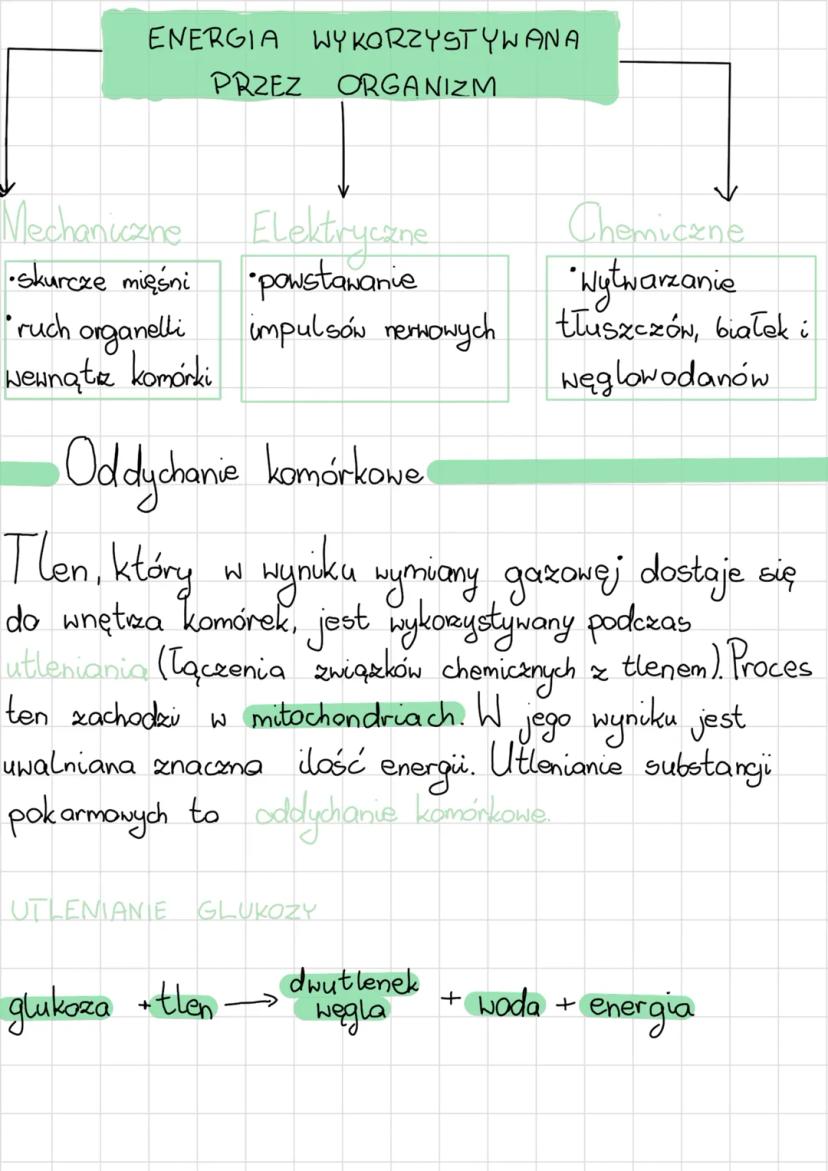 ENERGIA WYKORZYSTYWANA
PRZEZ ORGANIZM
Mechaniczne
•skurcze mięśni
•ruch organelli
wewnątrz komórki
Elektryczne
•powstawanie
impulsów nerwowych
Chemiczne
•Wytwarzanie
tłuszczów, białek i
węglowodanów
Oddychanie komórkowe
Tlen, który w wyniku wymiany gazowej dostaje się
do wnętrza komórek, jest wykorzystywany podczas
utleniania (łączenia związków chemicznych z tlenem). Proces
ten zachodzi w mitochondriach. W jego wyniku jest
uwalniana znaczna ilość energii. Utlenianie substancji
pokarmowych to oddychanie komórkowe.
UTLENIANIE GLUKOZY
glukoza + tlen → dwutlenek węgla + woda + energia